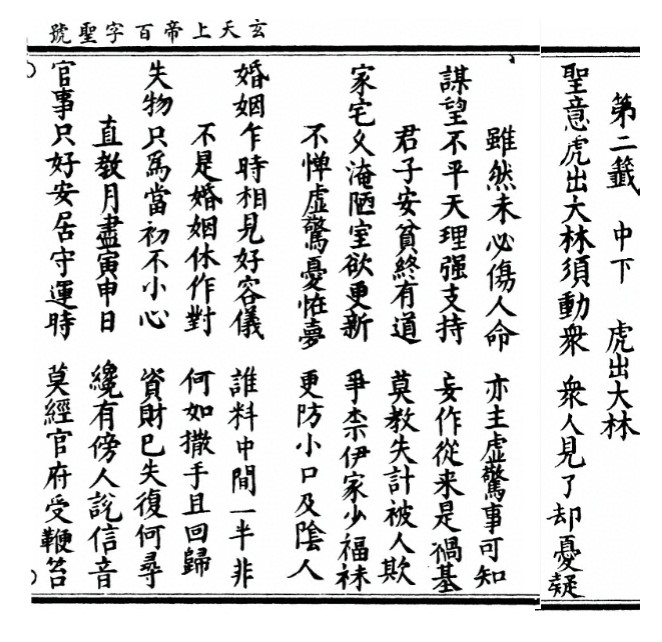 玄天上帝百字聖號
第二籤 中下 虎出大林
聖意虎出大林須動衆 衆人見了却憂疑
雖然未必傷人命 亦主虛驚事可知
謀望不平天理强支持 妄作從来是禍基
君子安貧終有道 莫教失計被人欺
家宅久淹陋室欲更新 爭柰伊家少福
不憚虛驚憂恠夢 更防小口及陰人
婚姻乍時相見好容儀 誰料中間一半非
不是婚姻休作對 何如撒手且回歸
失物只爲當初不小心 資財已失復何尋
直教月盡寅申日 纔有傍人說信音
官事只好安居守運時 莫經官府受鞭笞